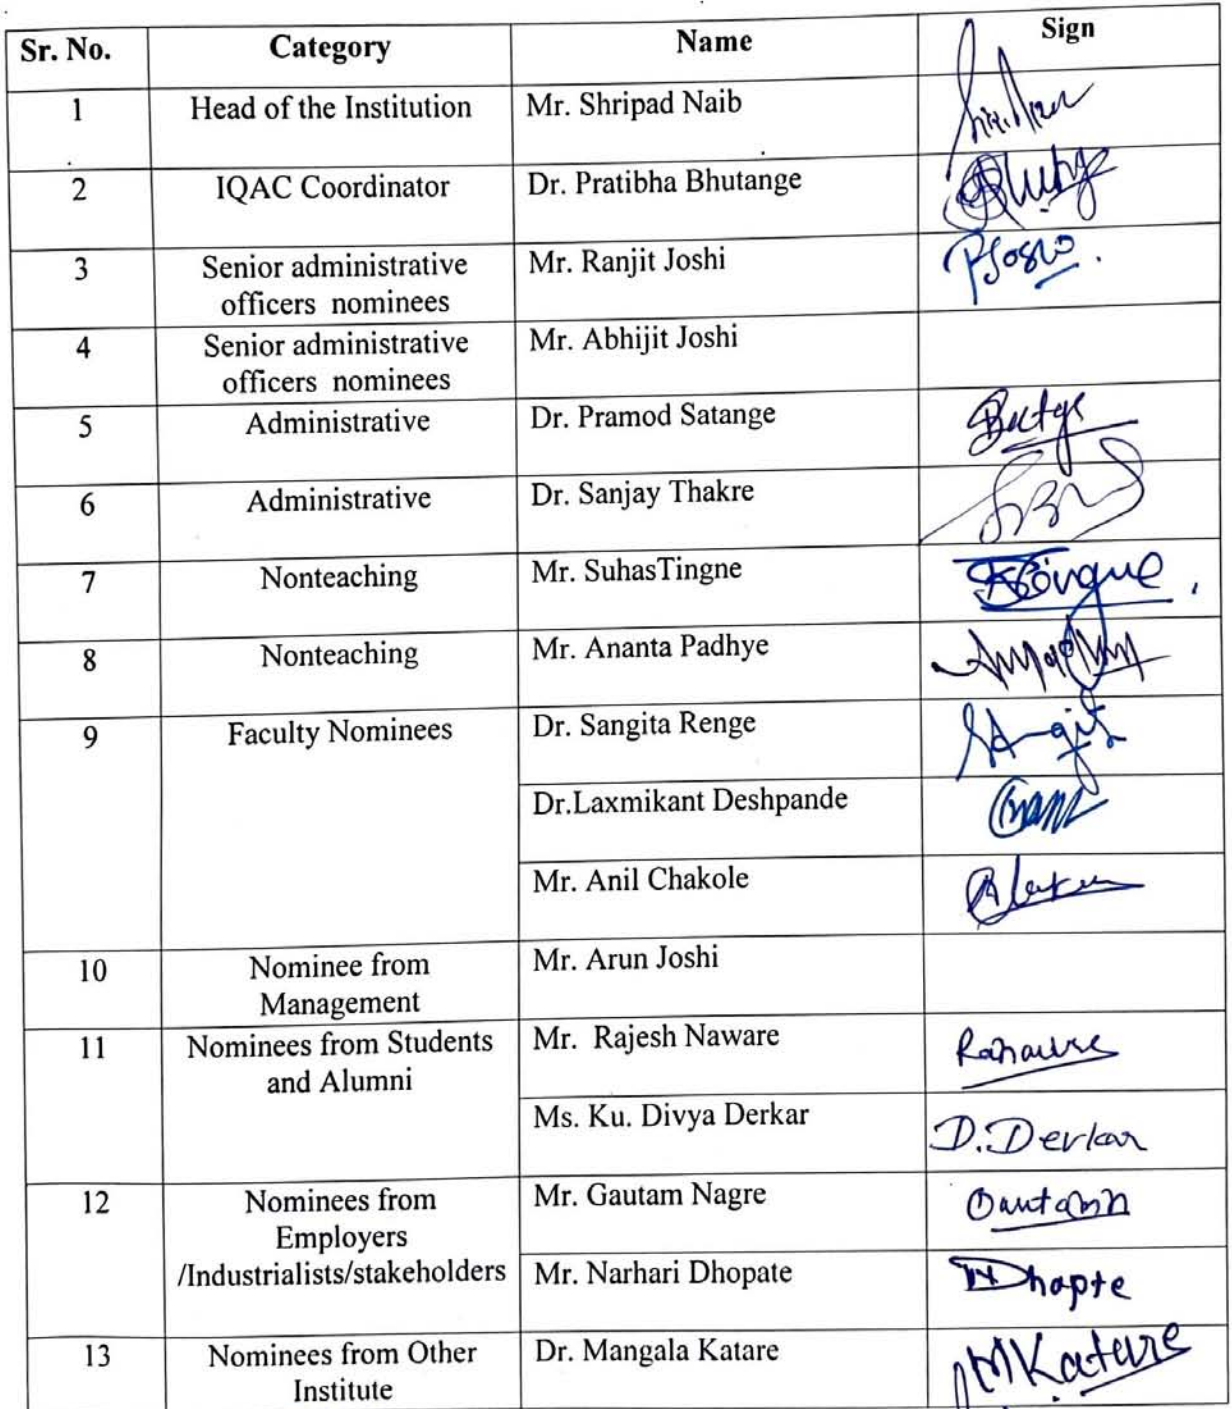 Sr. No. Category Name Sign
1 Head of the Institution Mr. Shripad Naib
2 IQAC Coordinator Dr. Pratibha Bhutange
3 Senior administrative officers nominees Mr. Ranjit Joshi
4 Senior administrative officers nominees Mr. Abhijit Joshi
5 Administrative Dr. Pramod Satange
6 Administrative Dr. Sanjay Thakre
7 Nonteaching Mr. SuhasTingne
8 Nonteaching Mr. Ananta Padhye
9 Faculty Nominees Dr. Sangita Renge
Dr.Laxmikant Deshpande
Mr. Anil Chakole
10 Nominee from Management Mr. Arun Joshi
11 Nominees from Students and Alumni Mr. Rajesh Naware
Ms. Ku. Divya Derkar D.Derkar
12 Nominees from Employers /Industrialists/stakeholders Mr. Gautam Nagre
Mr. Narhari Dhopate
13 Nominees from Other Institute Dr. Mangala Katare